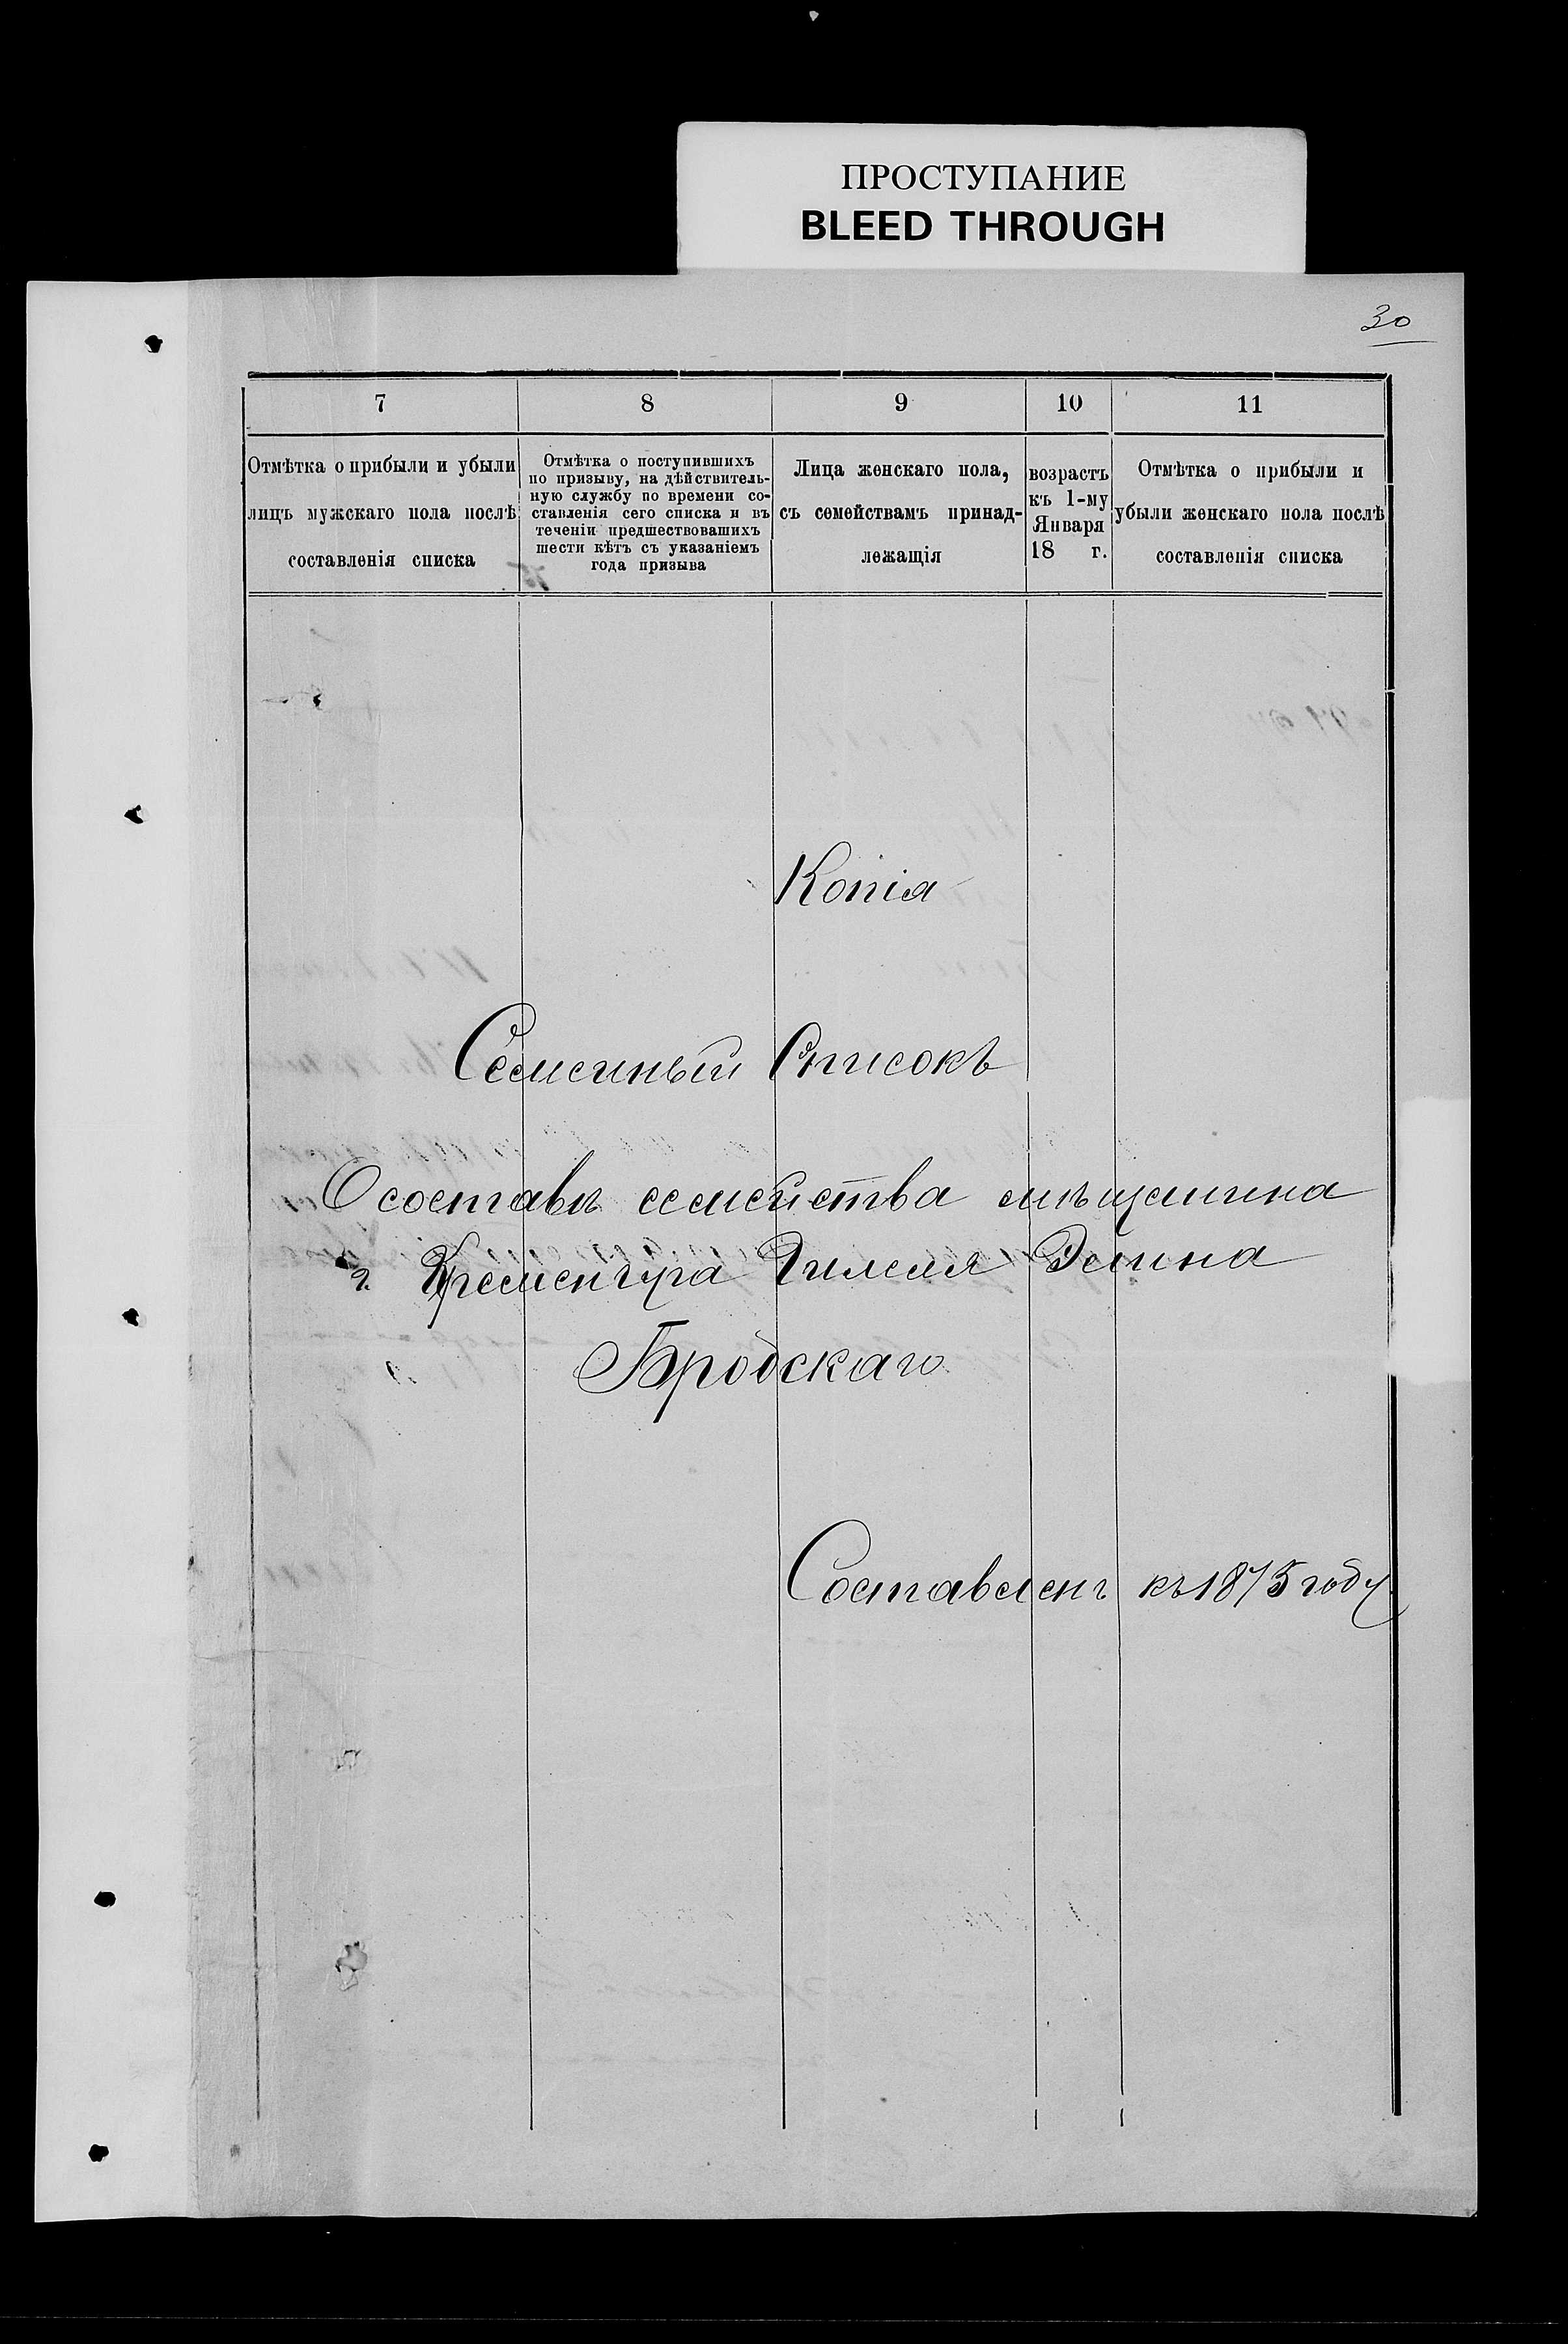 ПРОСТУПАНИЕ
BLEED THROUGH
30
7
8
9
10
11
Отмѣтка о прибыли и убыли
лицъ мужскаго пола послѣ
составленія списка
Отмѣтка о поступившихъ
по призыву, на дѣйствитель-
ную службу по времени со-
ставленія сего списка и въ
теченіи предшествовашихъ
шести кѣтъ съ указаніемъ
года призыва
Лица женскаго пола,
съ семействамъ принад-
лежащія
возрастъ
къ 1-му
Января
18 г.
Отмѣтка о прибыли и
убыли женскаго пола послѣ
составленія списка
Копія
Семейный Списокъ
О составѣ семейства мѣщанина
г. Кременчуга Гилеля Элина
Бродскаго
Составленъ къ 1875 году